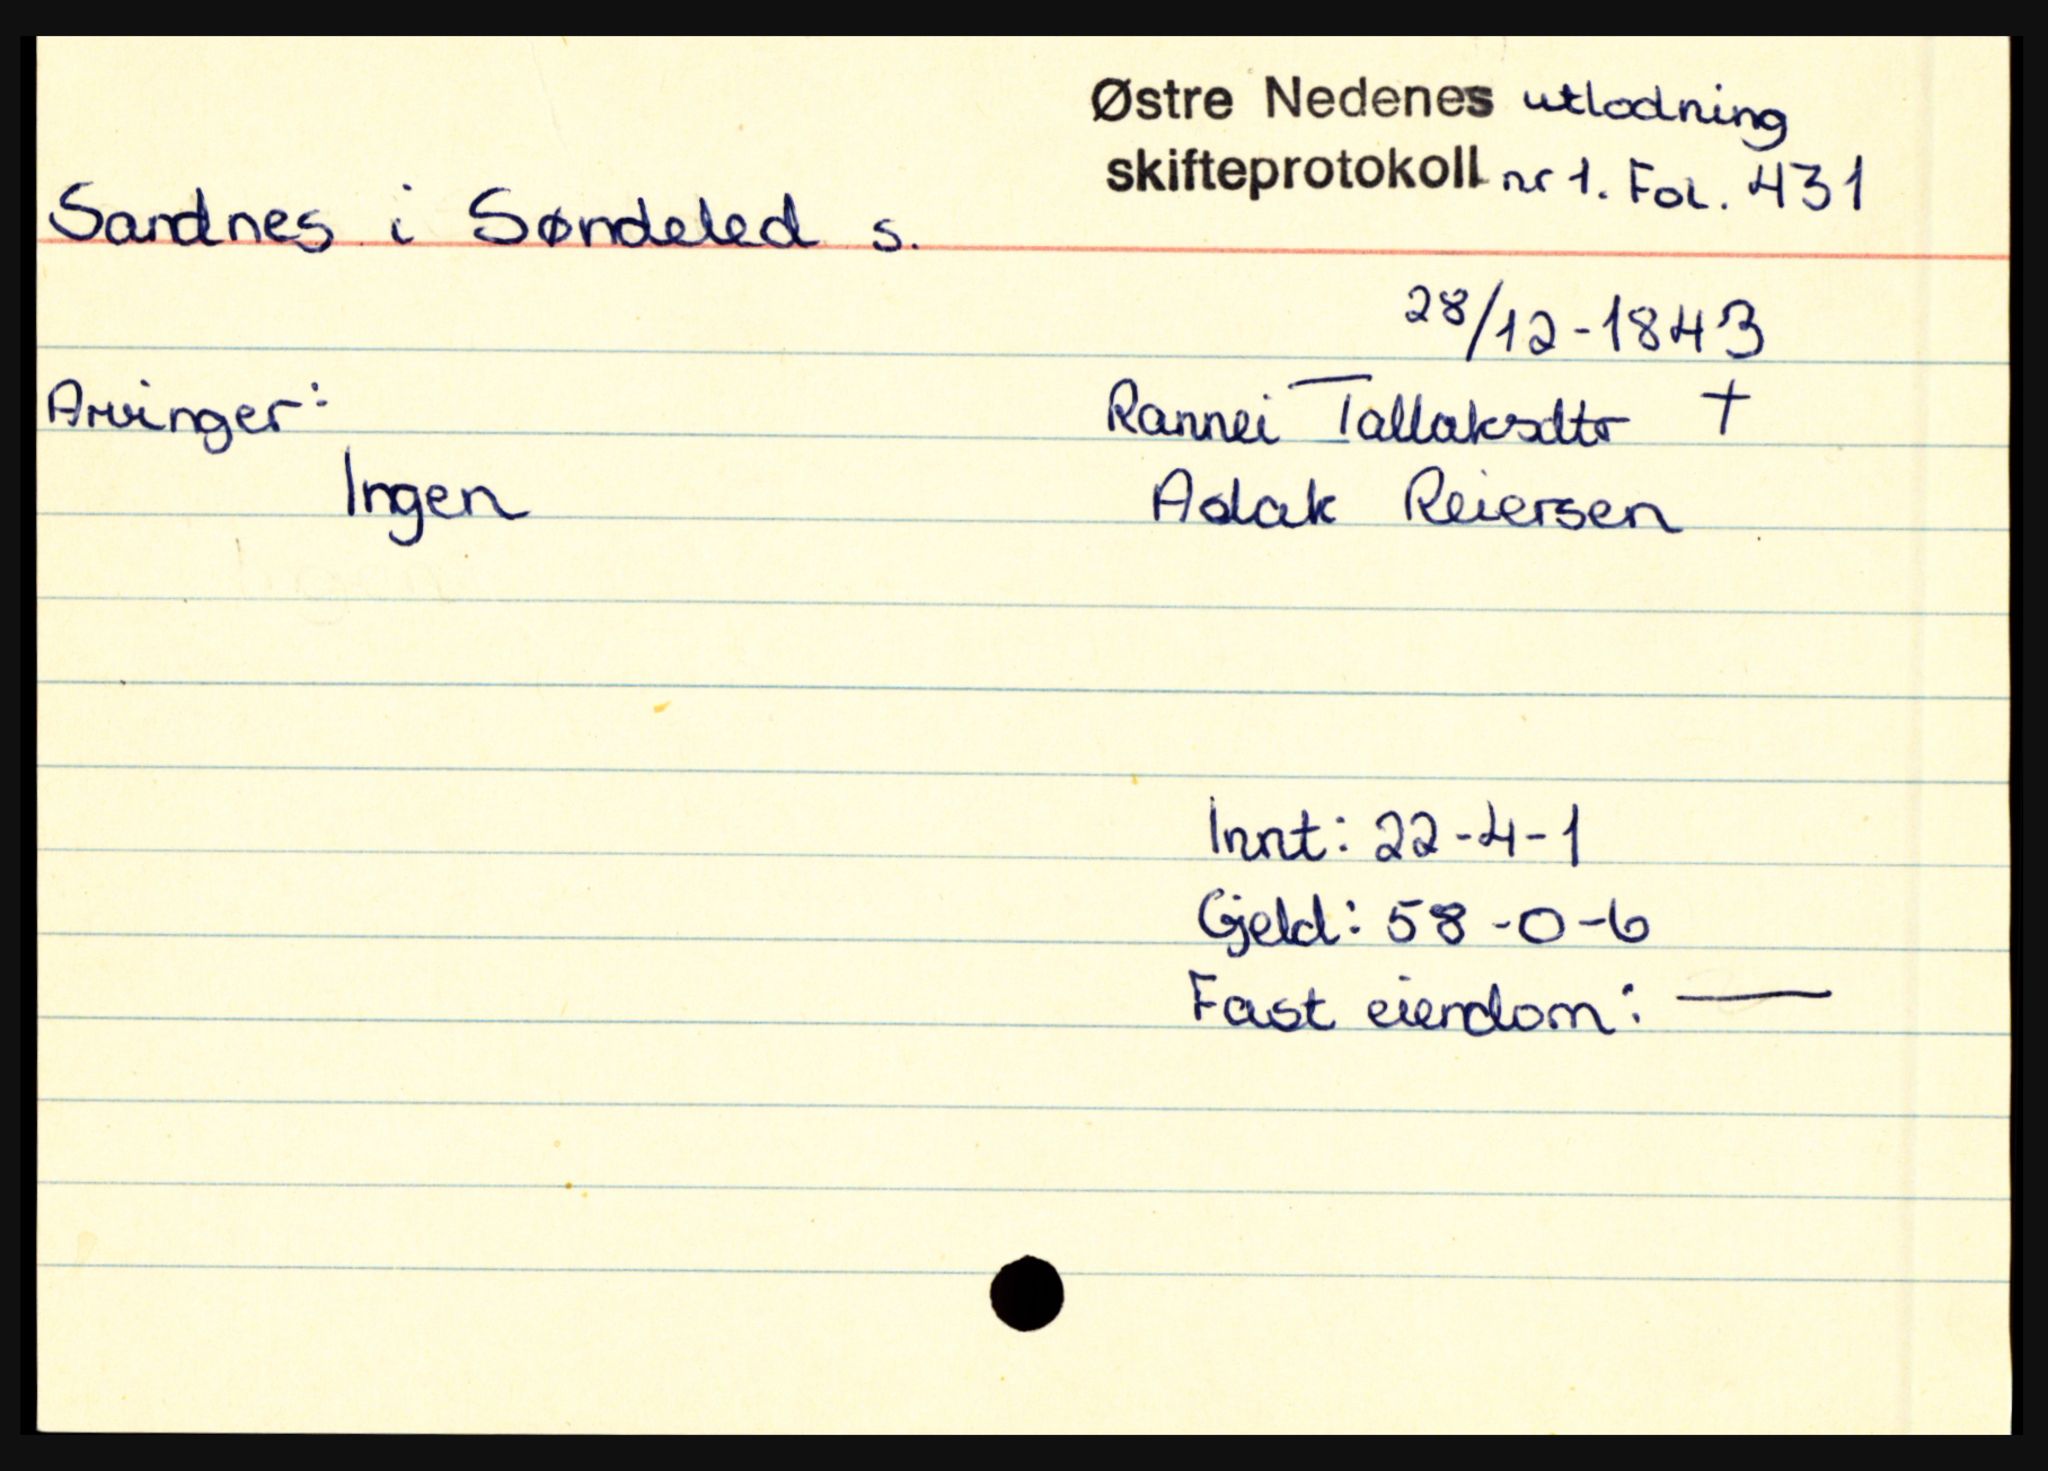 Østre Nedenes utlodning
skifteprotokoll nr 1. Fol. 431
Sandnes i Søndeled s.
28/12-1843
Arvinger:
Rannei Tallaksdtr †
Ingen
Aslak Reiersen
Innt: 22-4-1
Gjeld: 58-0-6
Fast eiendom: —